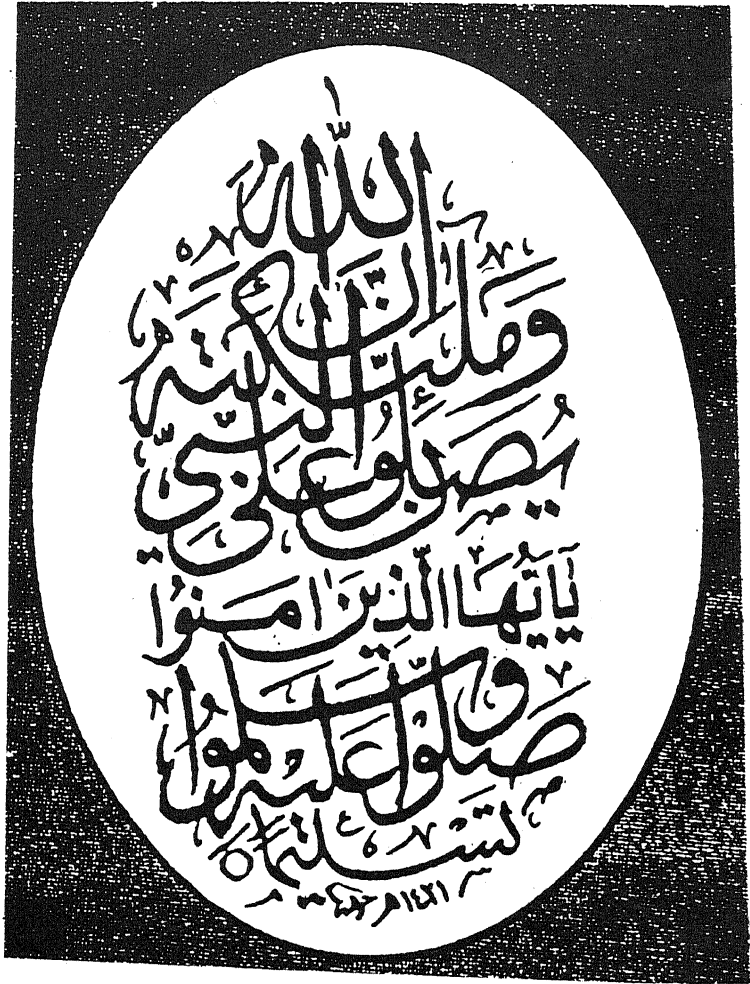 إِنَّ اللَّهَ
وَمَلَٰئِكَتَهُ
يُصَلُّونَ عَلَى النَّبِيِّ
يَٰأَيُّهَا الَّذِينَ ءَامَنُوا
صَلُّوا عَلَيْهِ وَسَلِّمُوا
تَسْلِيمًا
١٤٢١